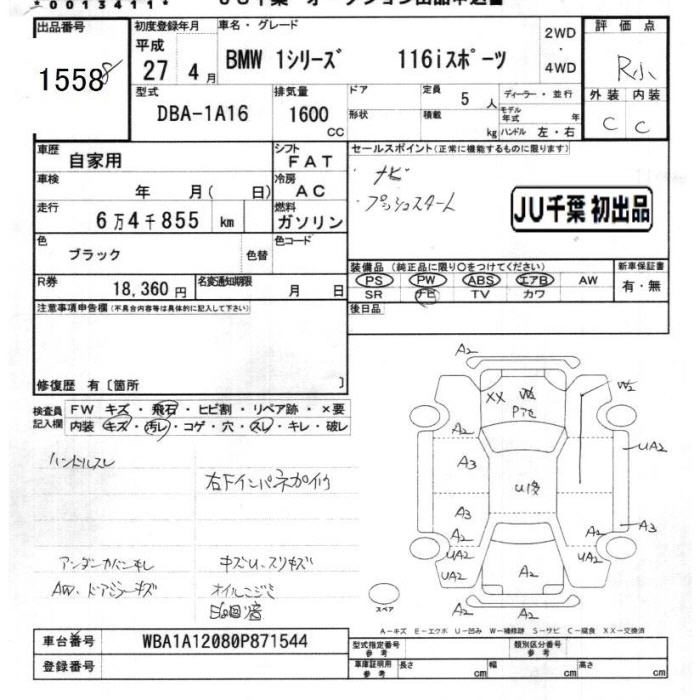 *0013411*
JU千葉 オークション出品申込書
出品番号
1558
初度登録年月
平成
27 4月
車名・グレード
BMW 1シリーズ 116iスポーツ
2WD
・
4WD
評価点
R小
外装 内装
C C
型式
DBA-1A16
排気量
1600
CC
ドア
形状
定員
5人
積載
kg
ディーラー・並行
モデル年式 年
ハンドル 左・右
車歴
自家用
シフト
FAT
セールスポイント(正常に機能するものに限ります)
・ナビ
・プッシュスタート
JU千葉 初出品
車検
年 月( 日)
冷房
AC
走行
6万4千855 km
燃料
ガソリン
色
ブラック
色替
色コード
装備品(純正品に限り○をつけてください)
PS PW ABS エアB AW
SR ナビ TV カワ
新車保証書
有・無
R券
18,360円
名変通知期限
月 日
後日品
注意事項申告欄(不具合内容等は具体的に記入して下さい)
修復歴 有〔箇所 〕
検査員
記入欄
FW キズ・飛石・ヒビ割・リペア跡・×要
内装 キズ・汚レ・コゲ・穴・スレ・キレ・破レ
ハンドルスレ
キズU、スリキズ
AW、ドアミラーキズ
A2
XX W2 W2
A2
A3
U1
UA2
A3
A2
A3
A2
UA2
UA2
A2
UA2
A2
A2
A2
スペア
A-キズ E-エクボ U-凹み W-補修跡 S-サビ C-腐食 XX-交換済
車台番号
WBA1A12080P871544
登録番号
型式指定番号
参考
類別区分番号
参考
車庫証明用
参考
長さ cm
幅 cm
高さ cm